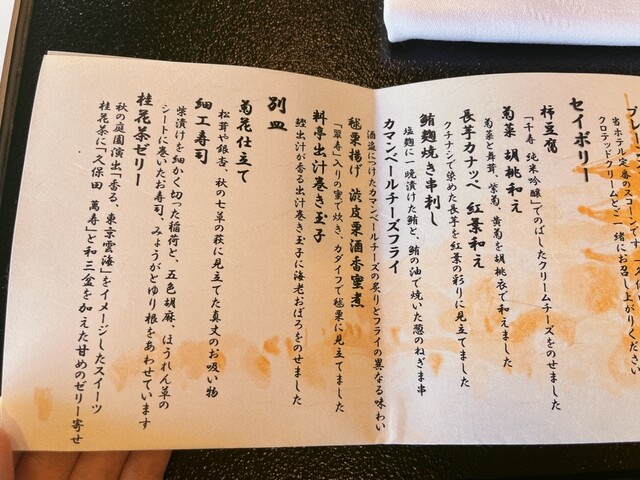 プレーン
当ホテル定番のスコーンです
クロテッドクリームとご一緒にお召し上がりください
セイボリー
柿豆腐
「千寿 純米吟醸」でのばしたクリームチーズをのせました
菊菜 胡桃和え
菊菜と舞茸、紫菊、黄菊を胡桃衣で和えました
長芋カナッペ 紅葉和え
クチナシで染めた長芋を紅葉の彩りに見立てました
鮪麹焼き串刺し
塩麹に一晩漬けた鮪と、鮪の油で焼いた葱のねぎま串
カマンベールチーズフライ
酒盗につけたカマンベールチーズの炙りとフライの異なる味わい
毬栗揚げ 渋皮栗酒香蜜煮
「翠寿」入りの蜜で炊き、カダイフで毬栗に見立てました
料亭出汁巻き玉子
鰹出汁が香る出汁巻き玉子に海老おぼろをのせました
別皿
菊花仕立て
松茸や銀杏、秋の七草の萩に見立てた真丈のお吸い物
細工寿司
柴漬けを細かく切った稲荷と、五色胡麻、ほうれん草の
シートに巻いたお寿司、みょうがとゆり根をあわせています
桂花茶ゼリー
秋の庭園演出「香る、東京雲海」をイメージしたスイーツ
桂花茶に「久保田 萬寿」と和三盆を加えた甘めのゼリー寄せ